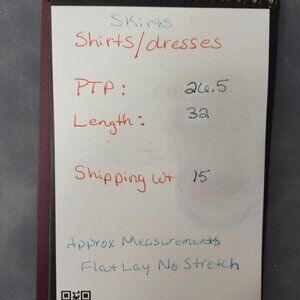 Skirts
Shirts/dresses
PTP: 26.5
Length: 32
Shipping wt 15
Approx Measurements
Flat Lay No Stretch